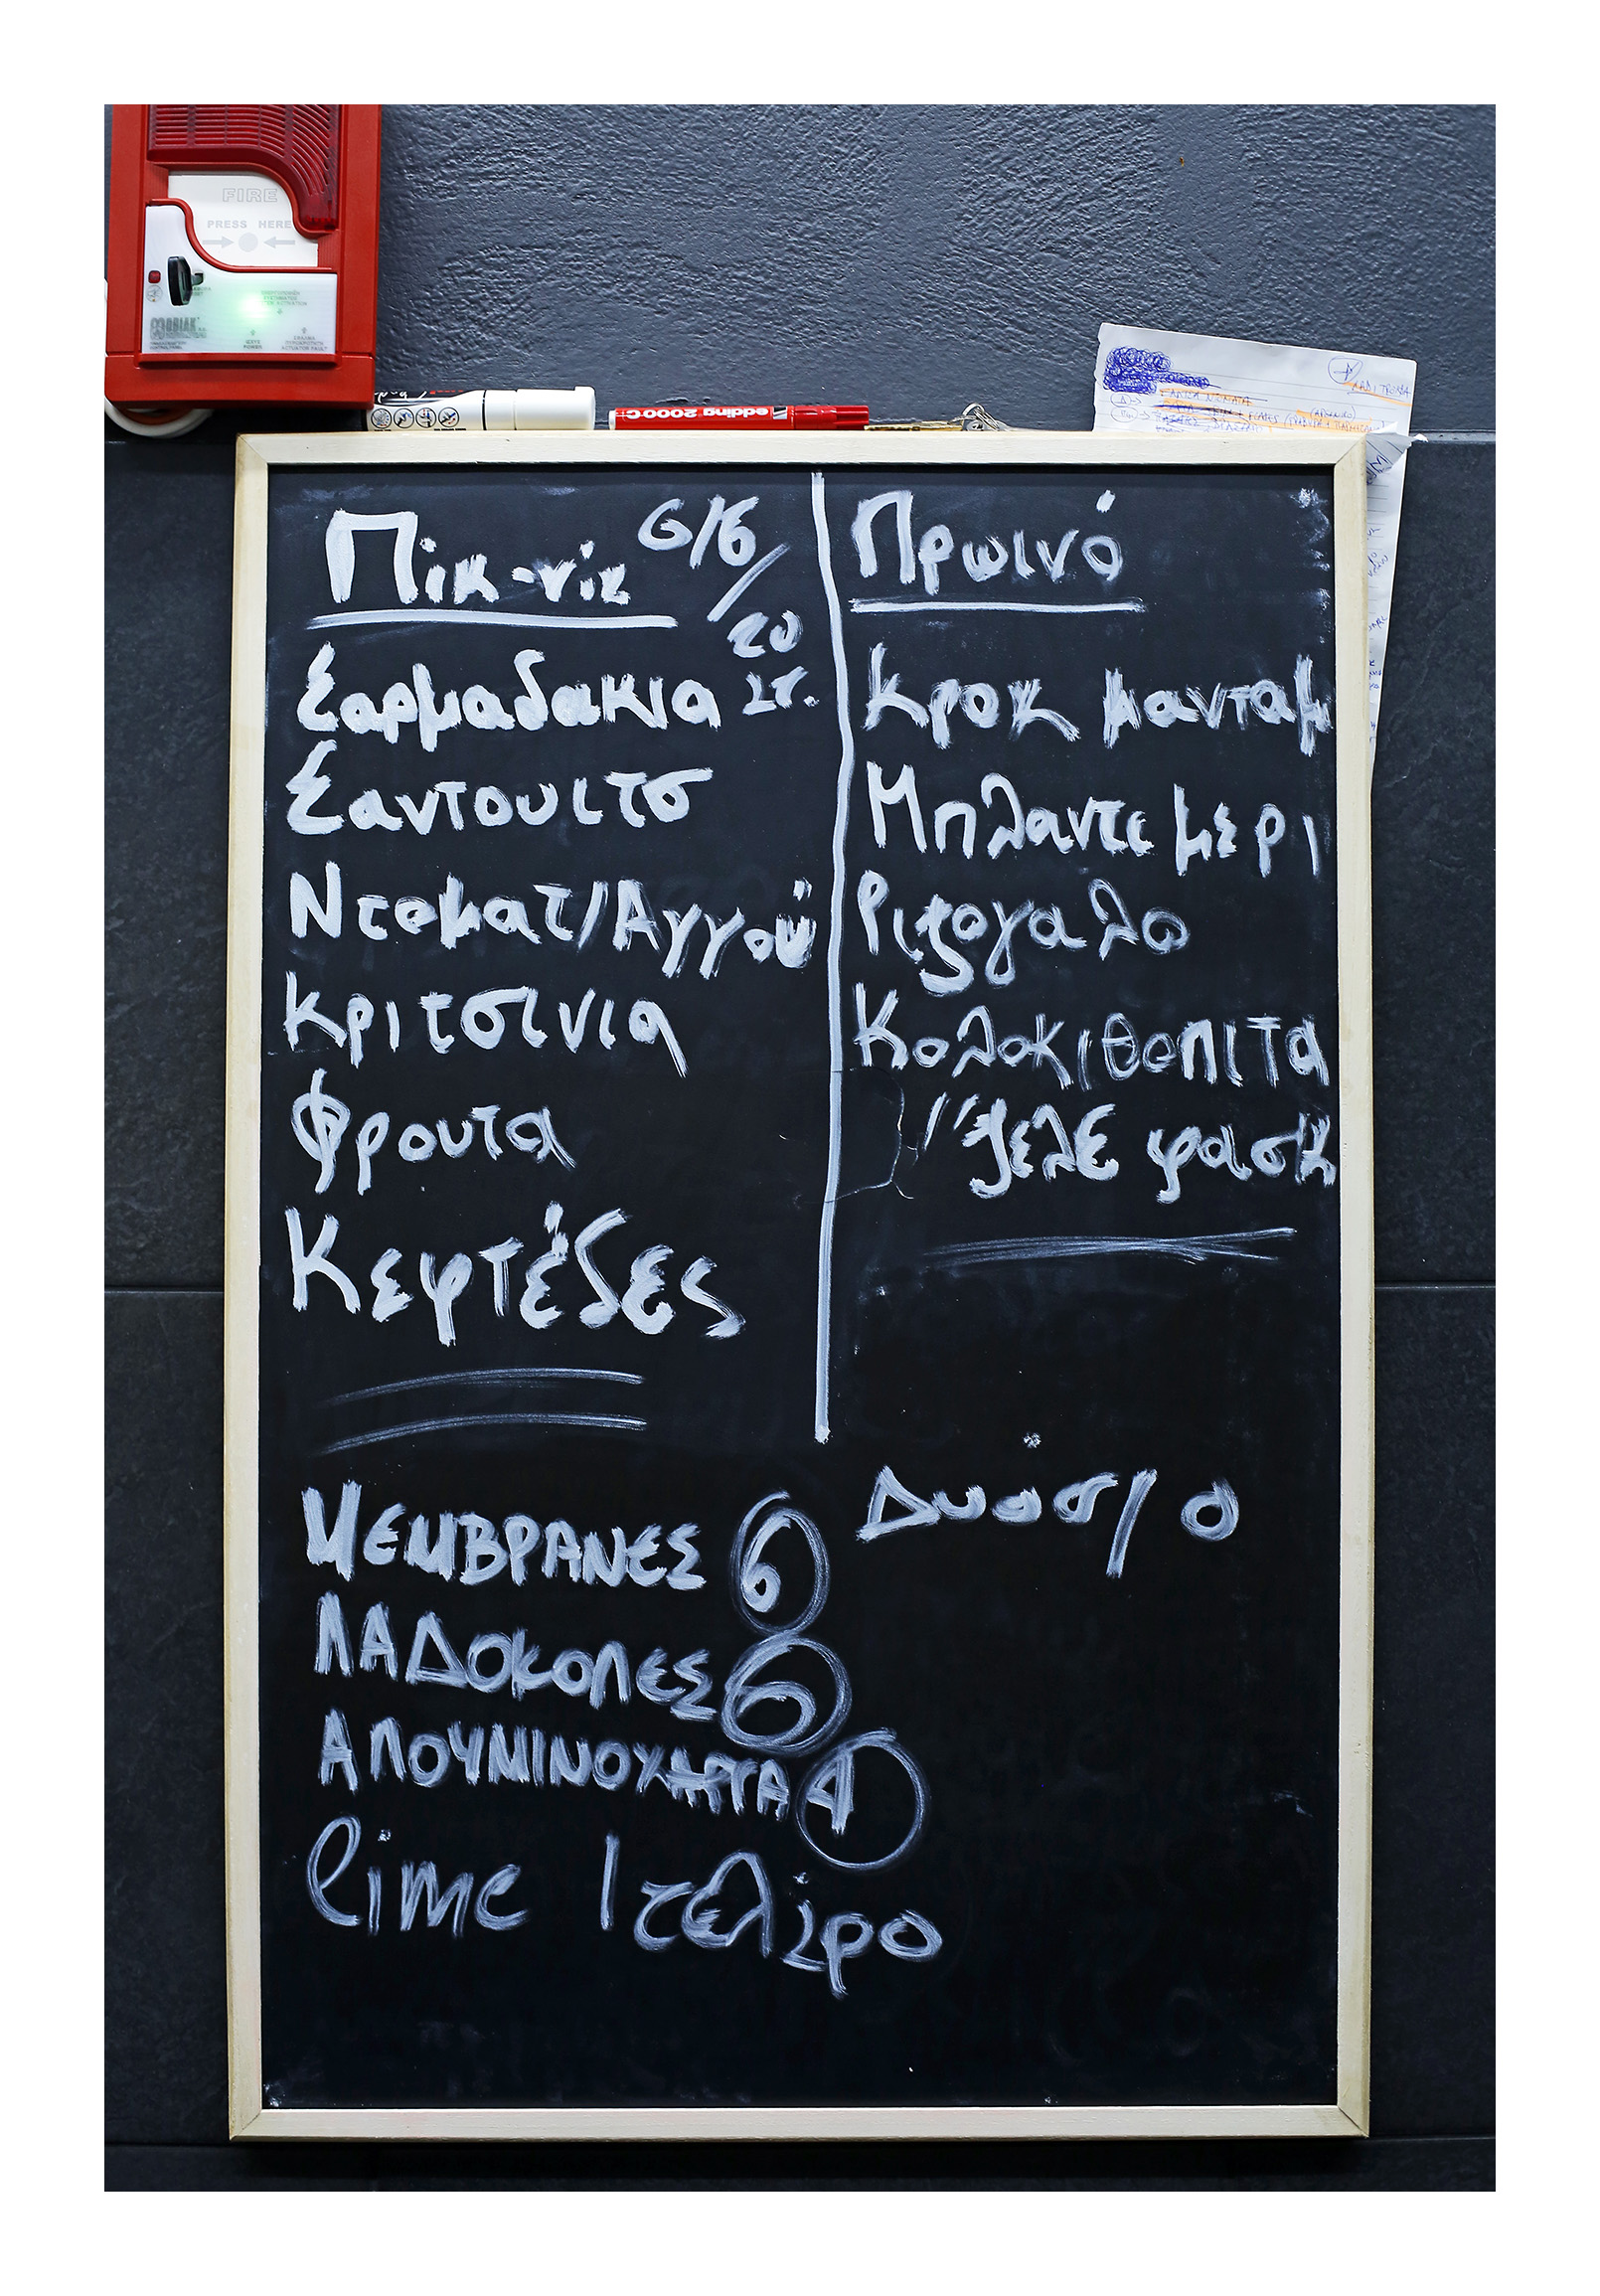 FIRE
PRESS HERE
edding 2000C
Πίκ-νίκ 6/6/20
Σαρμαδακια 2τ.
Σαντουιτσ
Ντοματ/Αγγού
Κριτσινια
Φρουτα
Κεφτέδες
Πρωινό
Κροκ μανταμ
Μπλαντε μερι
Ριζογαλο
Κολοκιθοπιτα
"Ζελέ φασκ
ΜΕΜΒΡΑΝΕΣ 6
ΛΑΔΟΚΟΛΕΣ 6
ΑΛΟΥΜΙΝΟΧΑΡΤΑ 4
lime 1 τελάρο
Δυόσ/ο